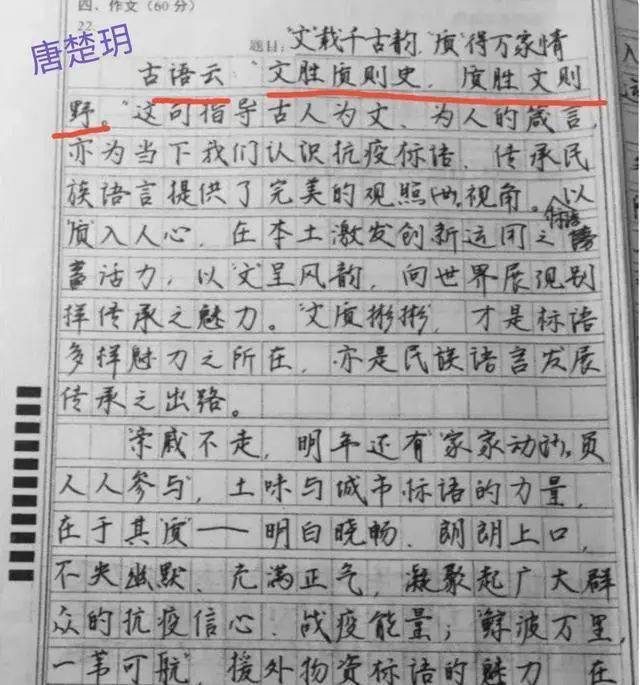 四、作文(60分)
22
唐楚玥
题目:"文"载千古韵,"质"得万家情
古语云:"文胜质则史,质胜文则
野。"这句指导古人为文、为人的箴言,
亦为当下我们认识抗疫标语、传承民
族语言提供了完美的观照视角。以
"质"入人心,在本土激发创新运用之标语
活力,以"文"呈风韵,向世界展现别
样传承之魅力。"文质彬彬",才是标语
多样魅力之所在,亦是民族语言发展
传承之出路。
"亲戚不走,明年还有""家家动员,
人人参与",土味与城市标语的力量,
在于其质——明白晓畅、朗朗上口,
不失幽默、充满正气,凝聚起广大群
众的抗疫信心、战疫能量;"鲸波万里,
一苇可航",援外物资标语的魅力,在